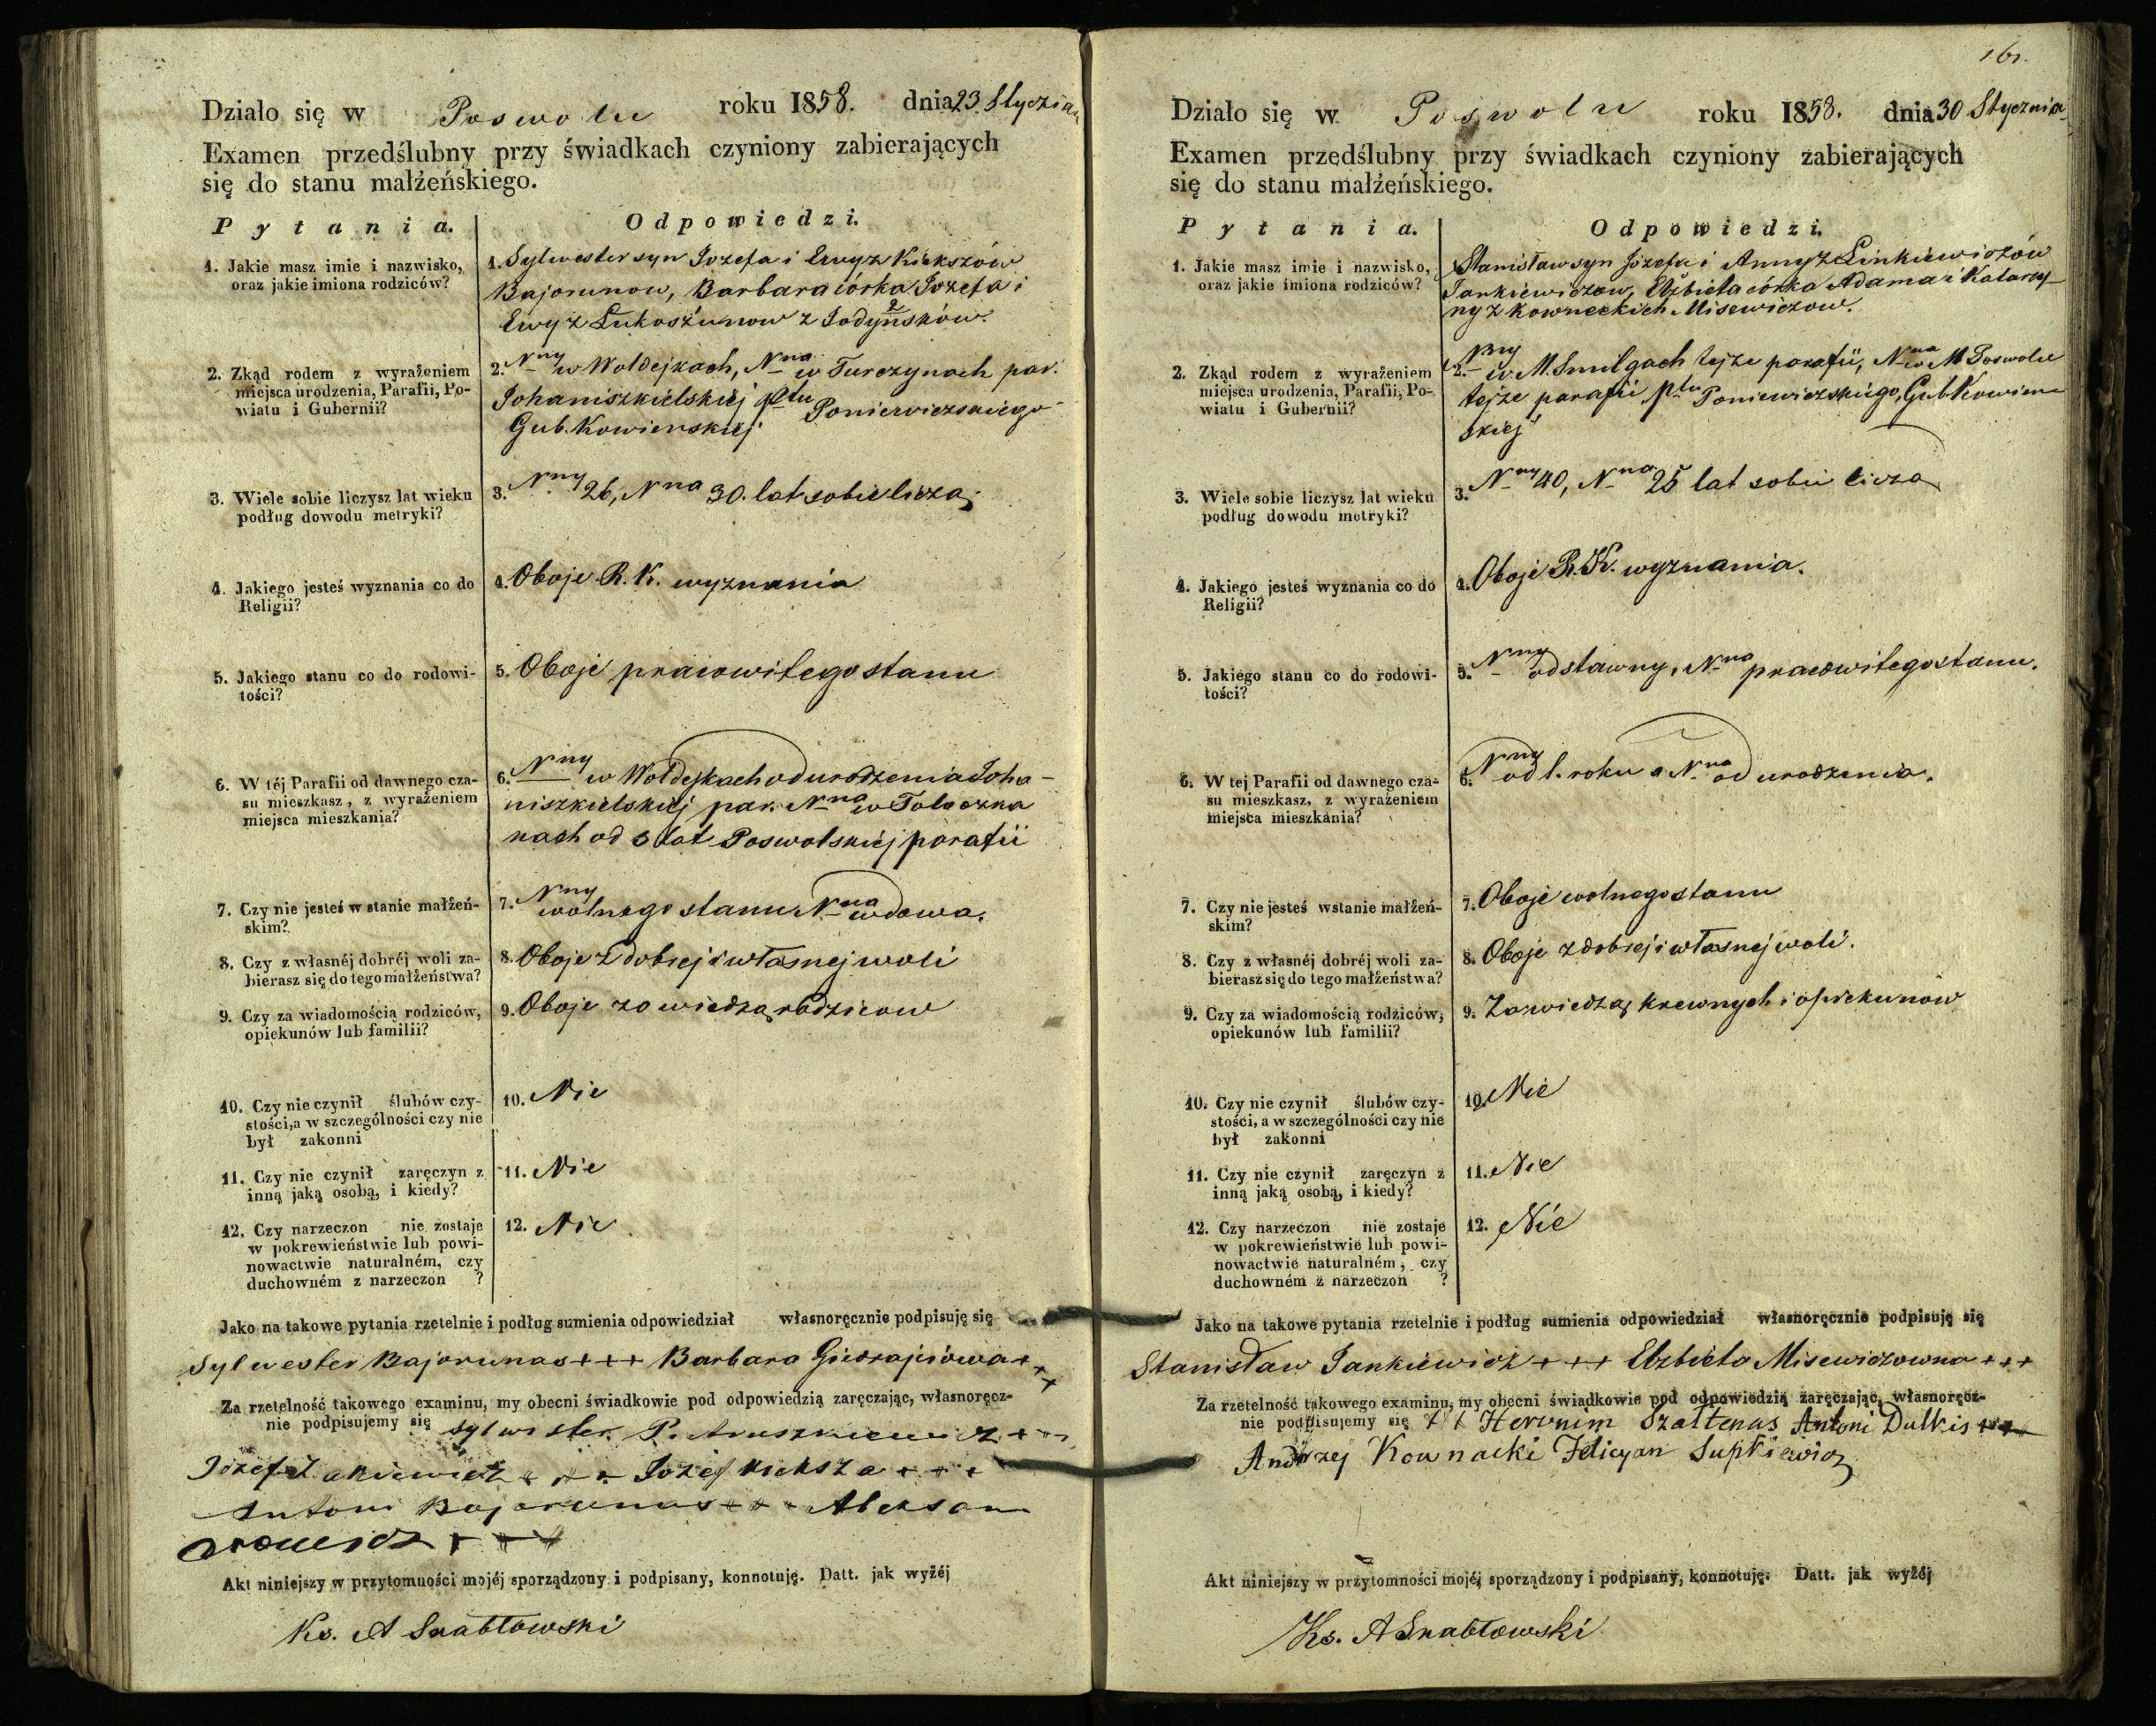 Działo się w Poswolu roku 1858. dnia 23 Stycznia
Examen przedślubny przy świadkach czyniony zabierających
się do stanu małżeńskiego.
Pytania. Odpowiedzi.
1. Jakie masz imie i nazwisko,
oraz jakie imiona rodziców?
1. Sylwester syn Jozefa i Ewy z Kiekszów
Bajorunow, Barbara córka Jozefa i
Ewy z Łukoszunow z Jodynsków.
2. Zkąd rodem z wyrażeniem
miejsca urodzenia, Parafii, Po-
wiatu i Gubernii?
2. Nny w Wołdejkach, Nna w Turczynach par.
Johaniszkielskiej Ptu Poniewiezskiego
Gub. Kowienskiej
3. Wiele sobie liczysz lat wieku
podług dowodu metryki?
3. Nny 26, Nna 30. lat sobie liczą.
4. Jakiego jesteś wyznania co do
Religii?
4. Oboje R. K. wyznania
5. Jakiego stanu co do rodowi-
tości?
5. Oboje pracowitego stanu
6. W téj Parafii od dawnego cza-
su mieszkasz, z wyrażeniem
miejsca mieszkania?
6. Nny w Wołdejkach od urodzenia Joha-
niszkielskiej par. Nna w
nach od 3 lat Poswolskiej parafii
7. Czy nie jesteś w stanie małżeń-
skim?
7. Nny wolnego stanu Nna wdowa.
8. Czy z własnéj dobréj woli za-
bierasz się do tego małżeństwa?
8. Oboje z dobrej i własnej woli
9. Czy za wiadomością rodziców,
opiekunów lub familii?
9. Oboje za wiedzą rodzicow
10. Czy nie czynił ślubów czy-
stości, a w szczególności czy nie
był zakonni
10. Nie
11. Czy nie czynił zaręczyn z
inną jaką osobą, i kiedy?
11. Nie
12. Czy narzeczon nie zostaje
w pokrewieństwie lub powi-
nowactwie naturalném, czy
duchowném z narzeczon ?
12. Nie
Jako na takowe pytania rzetelnie i podług sumienia odpowiedział własnoręcznie podpisuję się
Sylwester Bajorunas +++ Barbara Giedrajciowa +++
Za rzetelność takowego examinu, my obecni świadkowie pod odpowiedzią zaręczając, własnoręcz-
nie podpisujemy się Sylwester +++
Józef +++ Jozef Kieksza +++
Antoni Bajorunas +++ Aleksan
+++
Akt niniejszy w przytomności mojéj sporządzony i podpisany, konnotuję. Datt. jak wyżéj
Ks. A Snabłowski
161.
Działo się w Poswolu roku 1858. dnia 30 Stycznia
Examen przedślubny przy świadkach czyniony zabierających
się do stanu małżeńskiego.
Pytania. Odpowiedzi.
1. Jakie masz imie i nazwisko,
oraz jakie imiona rodziców?
Stanisław syn Józefa i Anny z Linkiewiczów
Jankiewiczow, Elzbieta córka Adama i Katarzy-
ny z Kowneckich Misewiczow.
2. Zkąd rodem z wyrażeniem
miejsca urodzenia, Parafii, Po-
wiatu i Gubernii?
2. Nny w M. Smilgach tejze parafii, Nna w M Poswolu
tejze parafii Ptu Poniewiezskiego, Gub Kowien-
skiej
3. Wiele sobie liczysz lat wieku
podług dowodu metryki?
3. Nny 40, Nna 25 lat sobie liczą
4. Jakiego jesteś wyznania co do
Religii?
4. Oboje R. K. wyznania.
5. Jakiego stanu co do rodowi-
tości?
5. Nny odstawny, Nna pracowitego stanu.
6. W tej Parafii od dawnego cza-
su mieszkasz, z wyrażeniem
miejsca mieszkania?
6. Nny od 1. roku a Nna od urodzenia.
7. Czy nie jesteś w stanie małżeń-
skim?
7. Oboje wolnego stanu
8. Czy z własnéj dobréj woli za-
bierasz się do tego małżeństwa?
8. Oboje z dobrej i własnej woli.
9. Czy za wiadomością rodziców,
opiekunów lub familii?
9. Za wiedzą krewnych i opiekunów
10. Czy nie czynił ślubów czy-
stości, a w szczególności czy nie
był zakonni
10. Nie
11. Czy nie czynił zaręczyn z
inną jaką osobą, i kiedy?
11. Nie
12. Czy narzeczon nie zostaje
w pokrewieństwie lub powi-
nowactwie naturalném, czy
duchowném z narzeczon ?
12. Nie
Jako na takowe pytania rzetelnie i podług sumienia odpowiedział własnoręcznie podpisuję się
Stanisław Jankiewicz +++ Elzbieta Misewiczowna +++
Za rzetelność takowego examinu, my obecni świadkowie pod odpowiedzią zaręczając, własnoręcz-
nie podpisujemy się +++ Heronim Szaltenas Antoni Dulkis +++
Andrzej Kownacki Felicyan Supkiewicz
Akt niniejszy w przytomności mojéj sporządzony i podpisany, konnotuję. Datt. jak wyżéj
Ks. A Snabłowski